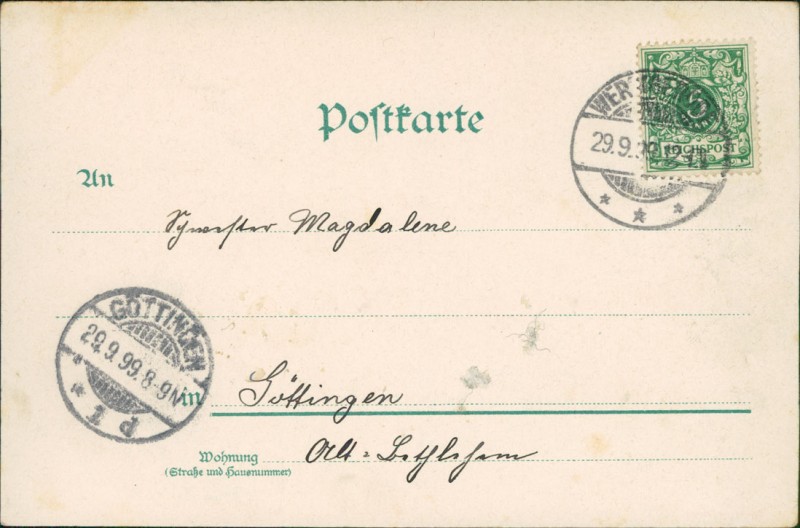 Postkarte
An
Schwester Magdalene
in Göttingen
Wohnung
(Straße und Hausnummer)
Alt-Bethlehem
29.9.99
REICHSPOST
GÖTTINGEN
29.9.99.8-9N
P 1